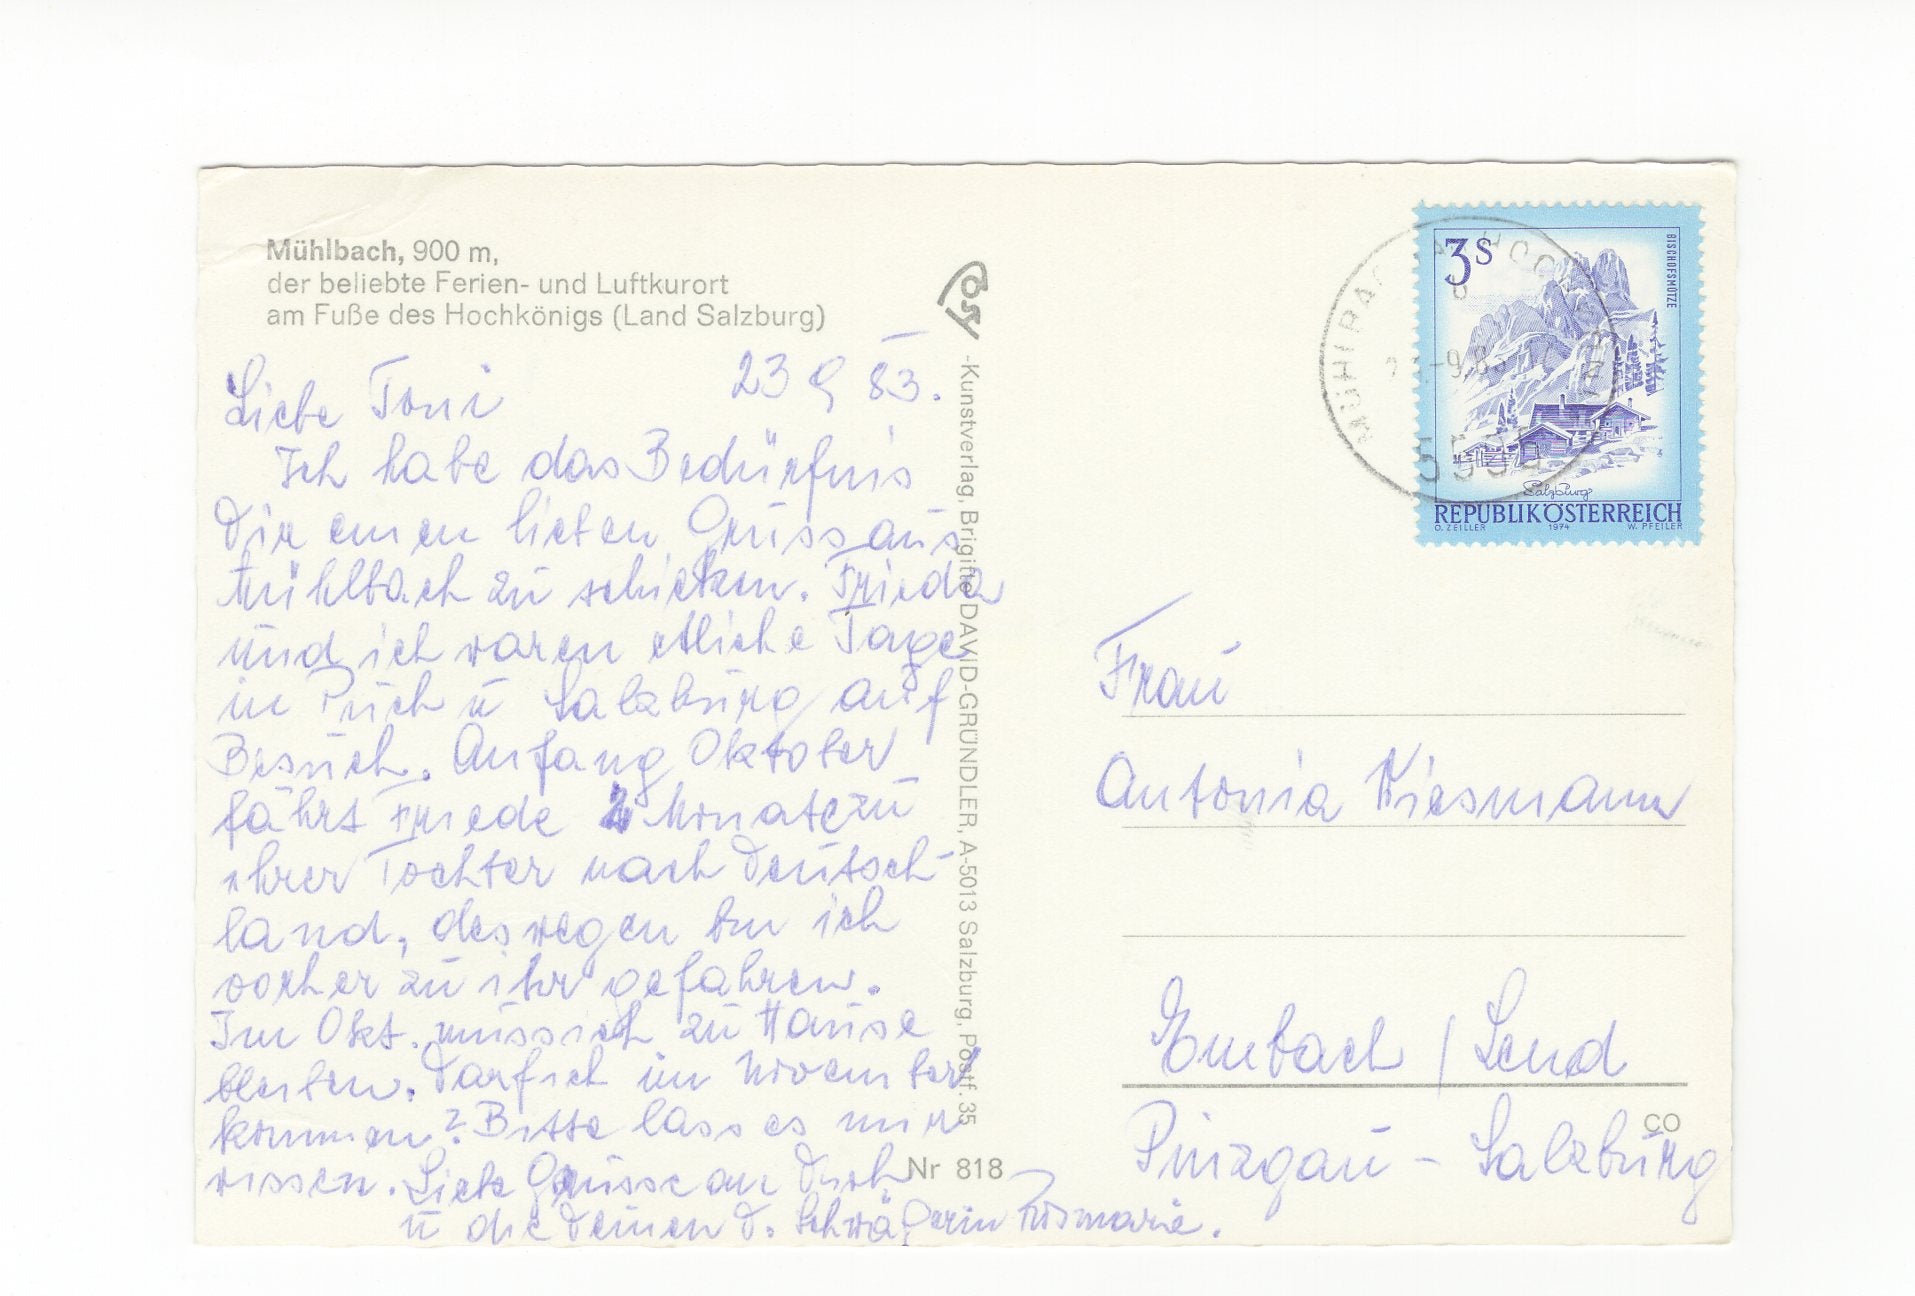 Mühlbach, 900 m,
der beliebte Ferien- und Luftkurort
am Fuße des Hochkönigs (Land Salzburg)
23 9 83.
Liebe Toni
Ich habe das Bedürfnis
Dir einen lieben Gruss aus
Mühlbach zu schicken. Frieda
und ich waren etliche Tage
in Puch u Salzburg auf
Besuch. Anfang Oktober
fährt Friede Monate zu
ihrer Tochter nach Deutsch-
land, deswegen bin ich
vorher zu ihr gefahren.
Im Okt. muss ich zu Hause
bleiben. Darf ich im November
kommen? Bitte lass es mir
wissen. Liebe Grüsse an Dich
u die Deinen d. Schwägerin Rosmarie.
-Kunstverlag, Brigitte DAVID-GRÜNDLER, A-5013 Salzburg, Postf. 35
Nr 818
3S
BISCHOFSMÜTZE
Salzburg
REPUBLIK ÖSTERREICH
O. ZEILLER 1974 W. PFEILER
-9.83
Frau
Antonia Wiesmann
Embach / Lend
CO
Pinzgau - Salzburg